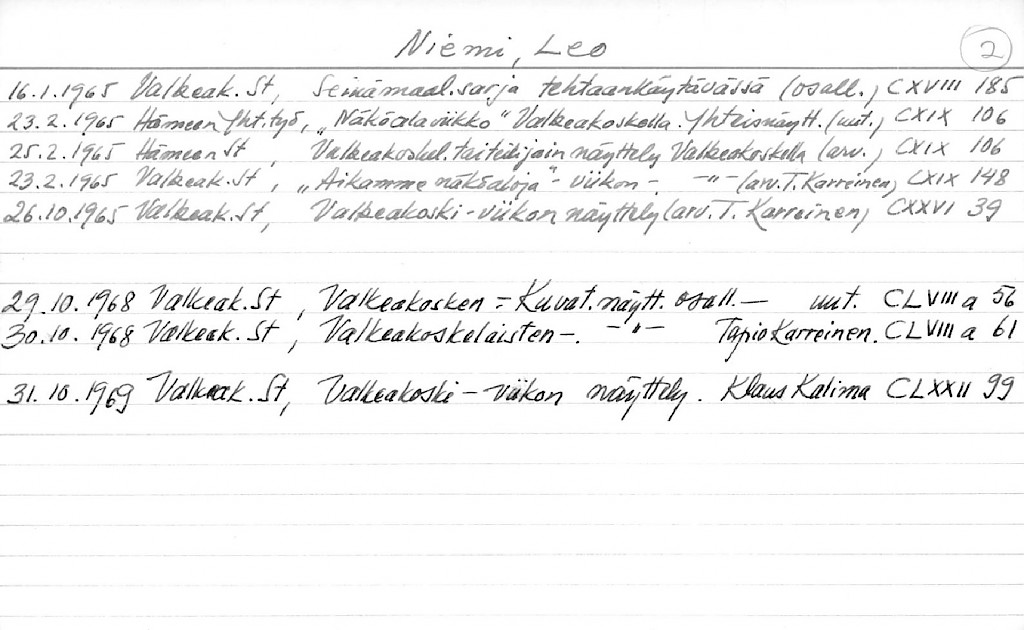 Niemi, Leo 2
16.1.1965 Valkeak. St, Seinämaal. sarja tehtaankäytävässä (osall.) CXVIII 185
23.2.1965 Hämeen Yht.työ, „Näköalaviikko" Valkeakoskella. Yhteisnäytt. (uut.) CXIX 106
25.2.1965 Hämeen St, Valkeakoskel. taiteilijain näyttely Valkeakoskella (arv.) CXIX 106
23.2.1965 Valkeak. St, „Aikamme näköaloja"- viikon -. -"- (arv. T. Karreinen) CXIX 148
26.10.1965 Valkeak. St, Valkeakoski-viikon näyttely (arv. T. Karreinen) CXXVI 39
29.10.1968 Valkeak. St, Valkeakosken = Kuvat. näytt. osall. — uut. CLVIII a 56
30.10.1968 Valkeak. St, Valkeakoskelaisten -. -"- Tapio Karreinen. CLVIII a 61
31.10.1969 Valkeak. St, Valkeakoski - viikon näyttely. Klaus Kalima CLXXII 99